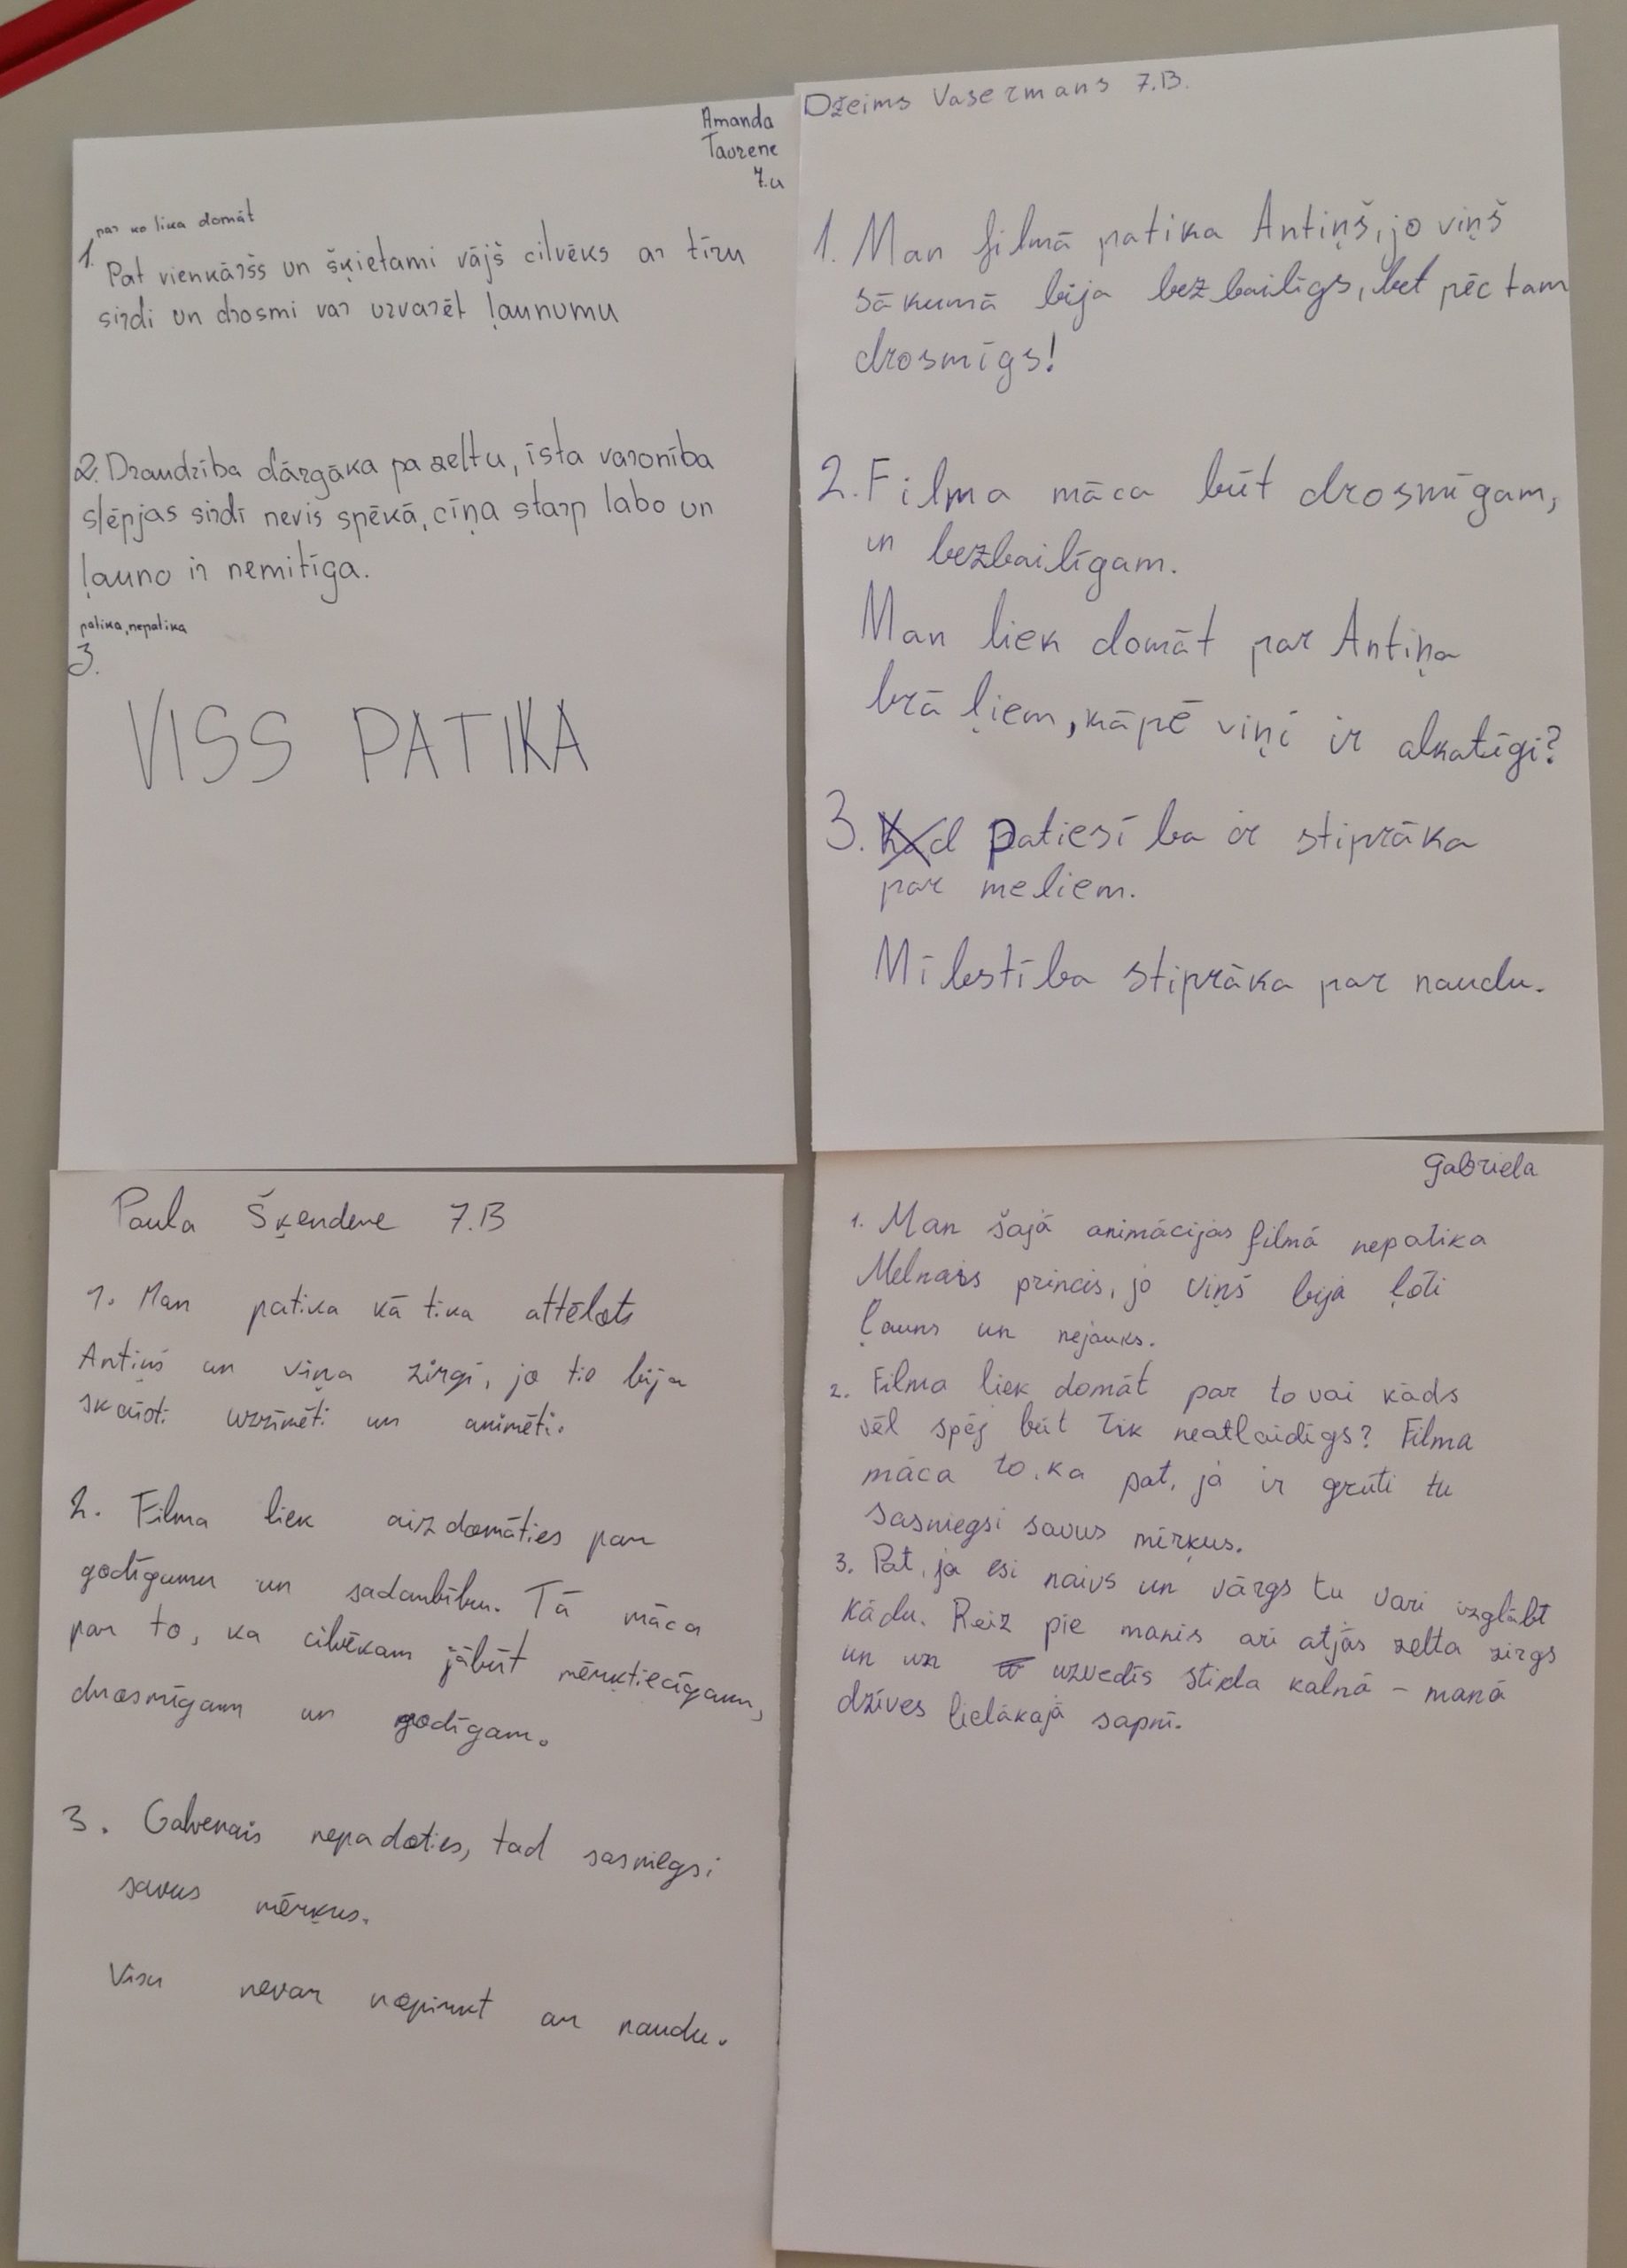 Amanda
Taurene
7.u
par ko lika domāt
1.
Pat vienkāršs un šķietami vājš cilvēks ar tīru
sirdi un drosmi var uzvarēt ļaunumu
2. Draudzība dārgāka pa zeltu, īsta varonība
slēpjas sirdī nevis spēkā, cīņa starp labo un
ļauno ir nemitīga.
patika, nepatika
3.
VISS PATIKA
Džeims Vasermans 7.B.
1. Man filmā patika Antiņš, jo viņš
sākumā bija bezbailīgs, bet pēc tam
drosmīgs!
2. Filma māca būt drosmīgam,
un bezbailīgam.
Man liek domāt par Antiņa
brāļiem, kāpē viņi ir alkatīgi?
3. Patiesība ir stiprāka
par meliem.
Mīlestība stiprāka par naudu.
Paula Šķendere 7.B
1. Man patika kā tika attēlots
Antiņš un viņa zirgi, jo tie bija
skaisti uzzīmēti un animēti.
2. Filma liek aizdomāties par
godīgumu un sadarbību. Tā māca
par to, ka cilvēkam jābūt mērķtiecīgam,
drosmīgam un godīgam.
3. Galvenais nepadoties, tad sasniegsi
savus mērķus.
Visu nevar nopirkt ar naudu.
Gabriela
1. Man šajā animācijas filmā nepatika
Melnais princis, jo viņš bija ļoti
ļauns un nejauks.
2. Filma liek domāt par to vai kāds
vēl spēj būt tik neatlaidīgs? Filma
māca to, ka pat, ja ir grūti tu
sasniegsi savus mērķus.
3. Pat, ja esi naivs un vārgs tu vari izglābt
kādu. Reiz pie manis arī atjās zelta zirgs
un uz uzvedīs stikla kalnā – manā
dzīves lielākajā sapnī.